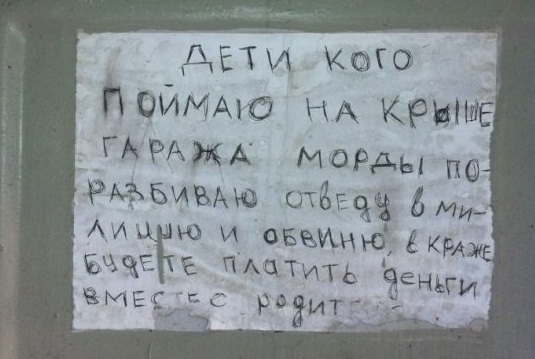 ДЕТИ КОГО
ПОЙМАЮ НА КРЫШЕ
ГАРАЖА МОРДЫ ПО-
РАЗБИВАЮ ОТВЕДУ В МИ-
ЛИЦИЮ И ОБВИНЮ, В КРАЖЕ
БУДЕТЕ ПЛАТИТЬ ДЕНЬГИ
ВМЕСТЕ С